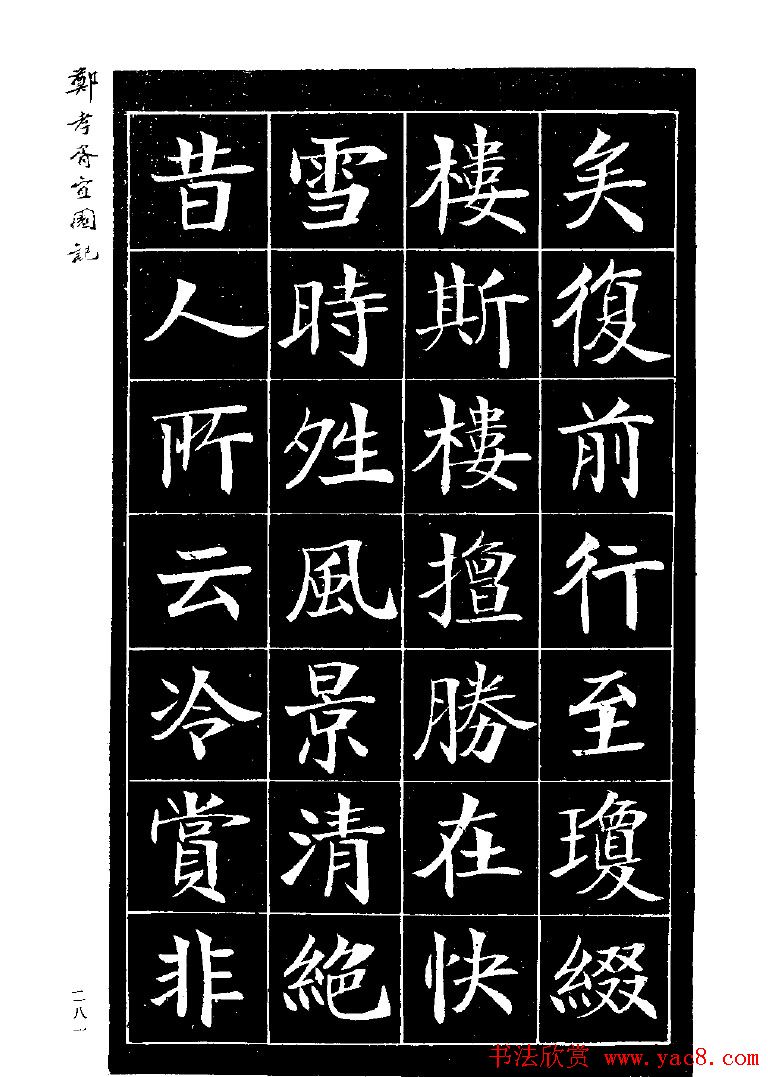 矣復前行至瓊綴
樓斯樓擅勝在快
雪時夝風景清絶
昔人所云冷賞非
鄭孝胥宜園記
二八一
书法欣赏 www.yac8.com